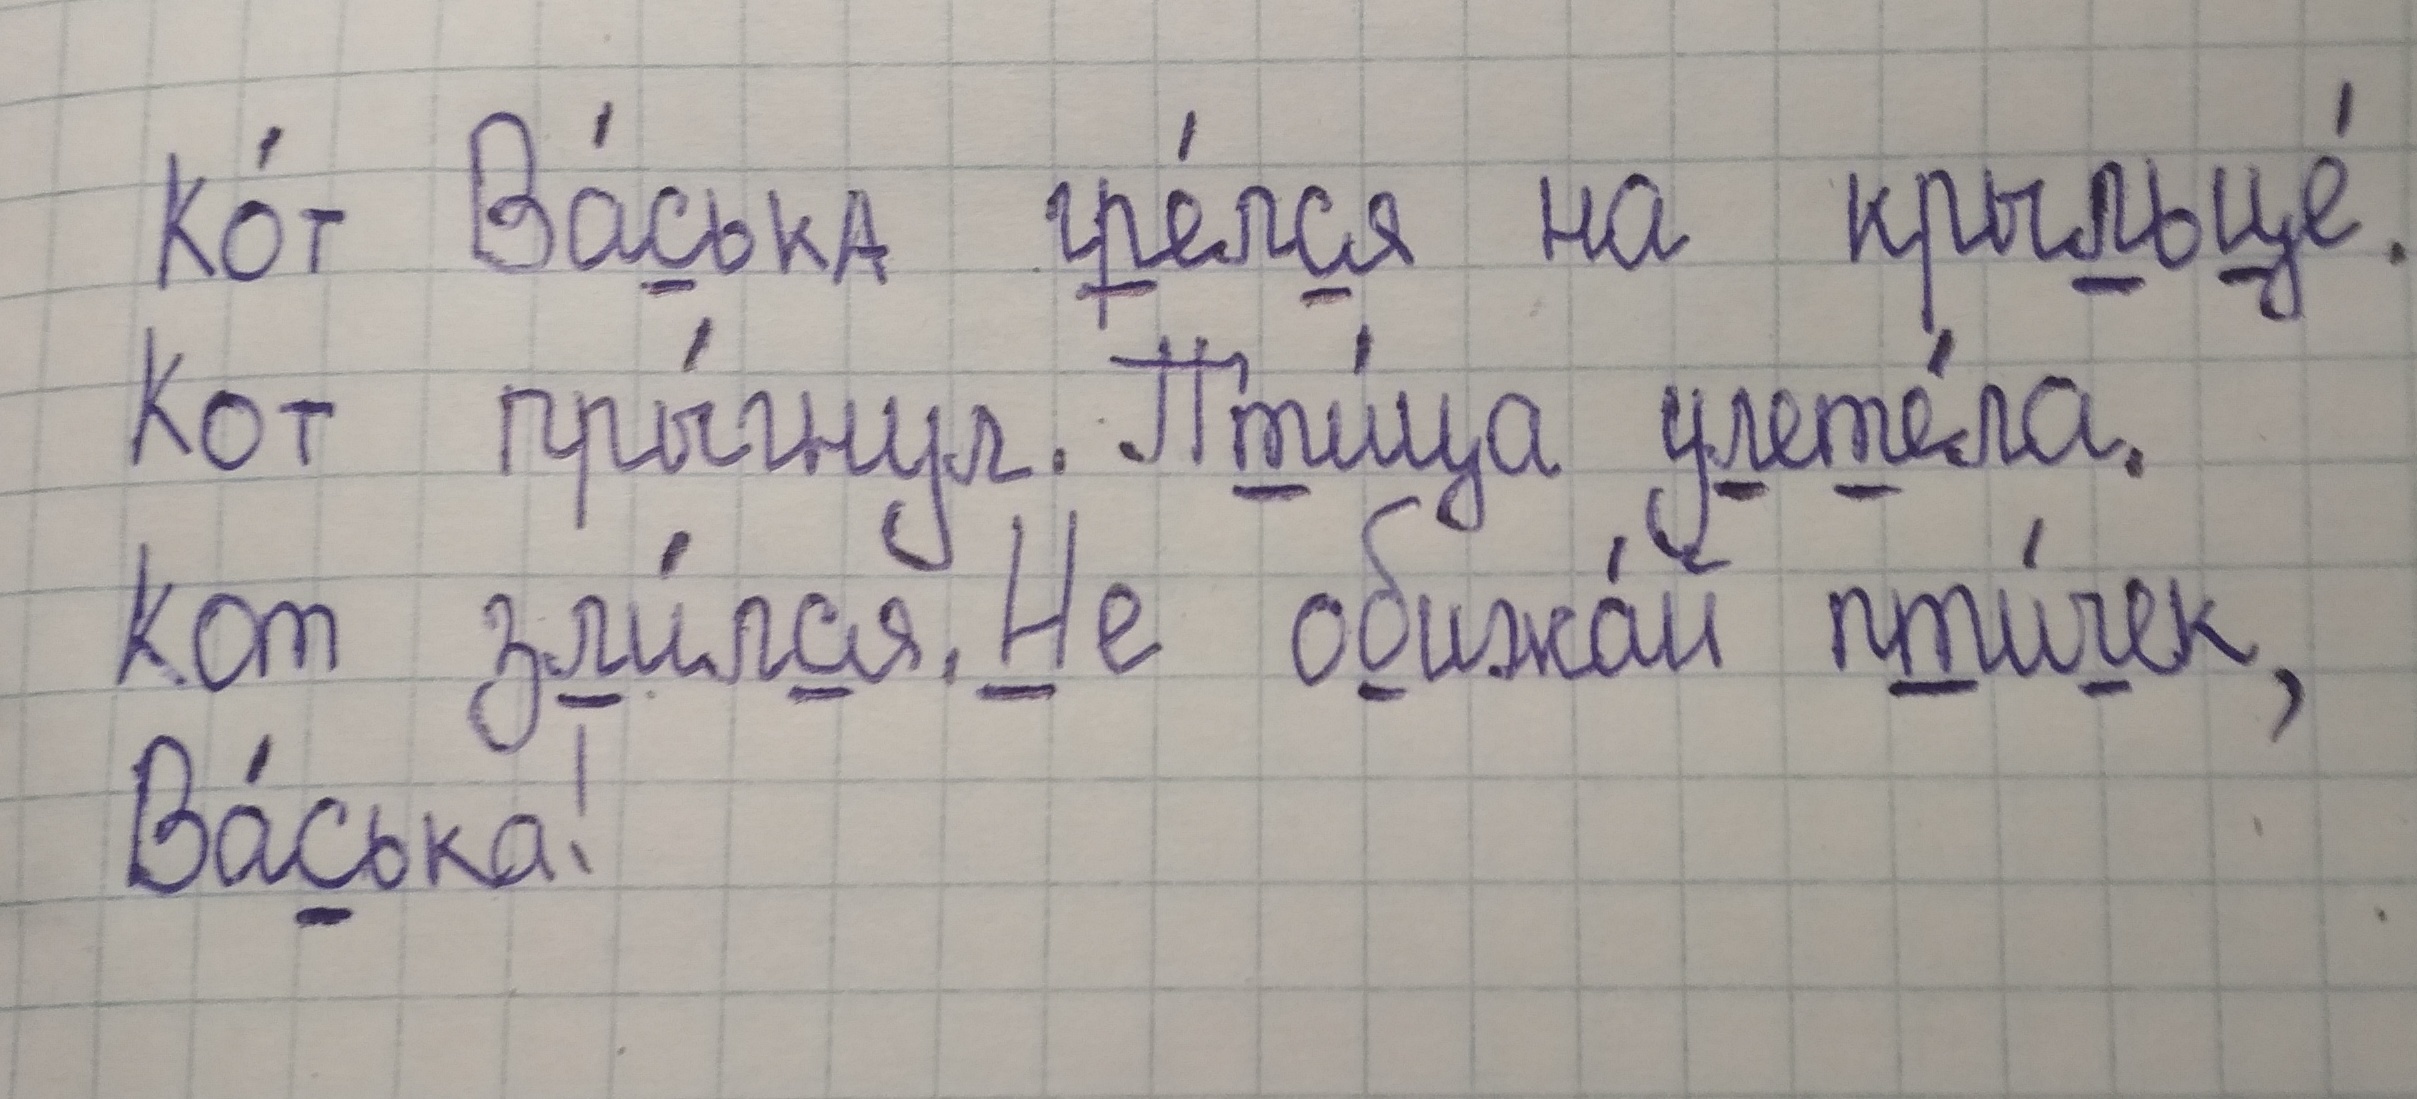 Ко́т Ва́ська гре́лся на крыльце́.
Кот пры́гнул. Пти́ца улете́ла.
Кот зли́лся. Не обижа́й пти́чек,
Ва́ська!